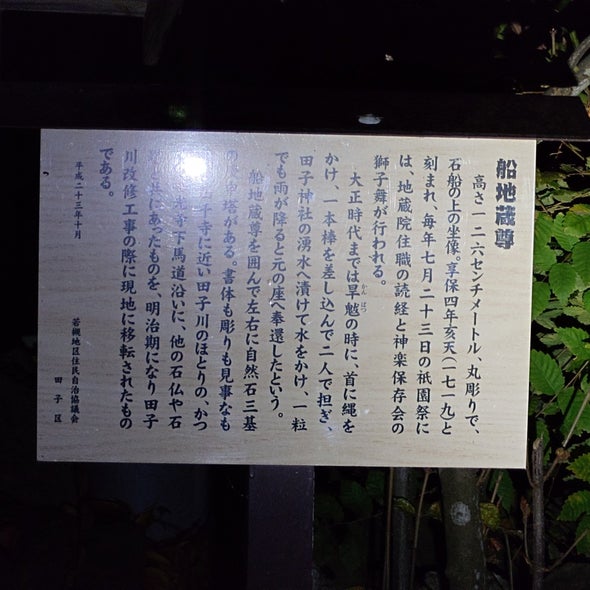 船地蔵尊
高さ一二六センチメートル、丸彫りで、
石船の上の坐像。享保四年亥天(一七一九)と
刻まれ、毎年七月二十三日の祇園祭に
は、地蔵院住職の読経と神楽保存会の
獅子舞が行われる。
大正時代までは旱魃の時に、首に縄を
かんばつ
かけ、一本棒を差し込んで二人で担ぎ、
田子神社の湧水へ漬けて水をかけ、一粒
でも雨が降ると元の座へ奉還したという。
船地蔵尊を囲んで左右に自然石三基
の 塔がある。書体も彫りも見事なも
千寺に近い田子川のほとりの、かつ
光寺下馬道沿いに、他の石仏や石
共にあったものを、明治期になり田子
川改修工事の際に現地に移転されたもの
である。
平成二十三年十月
若槻地区住民自治協議会
田子区